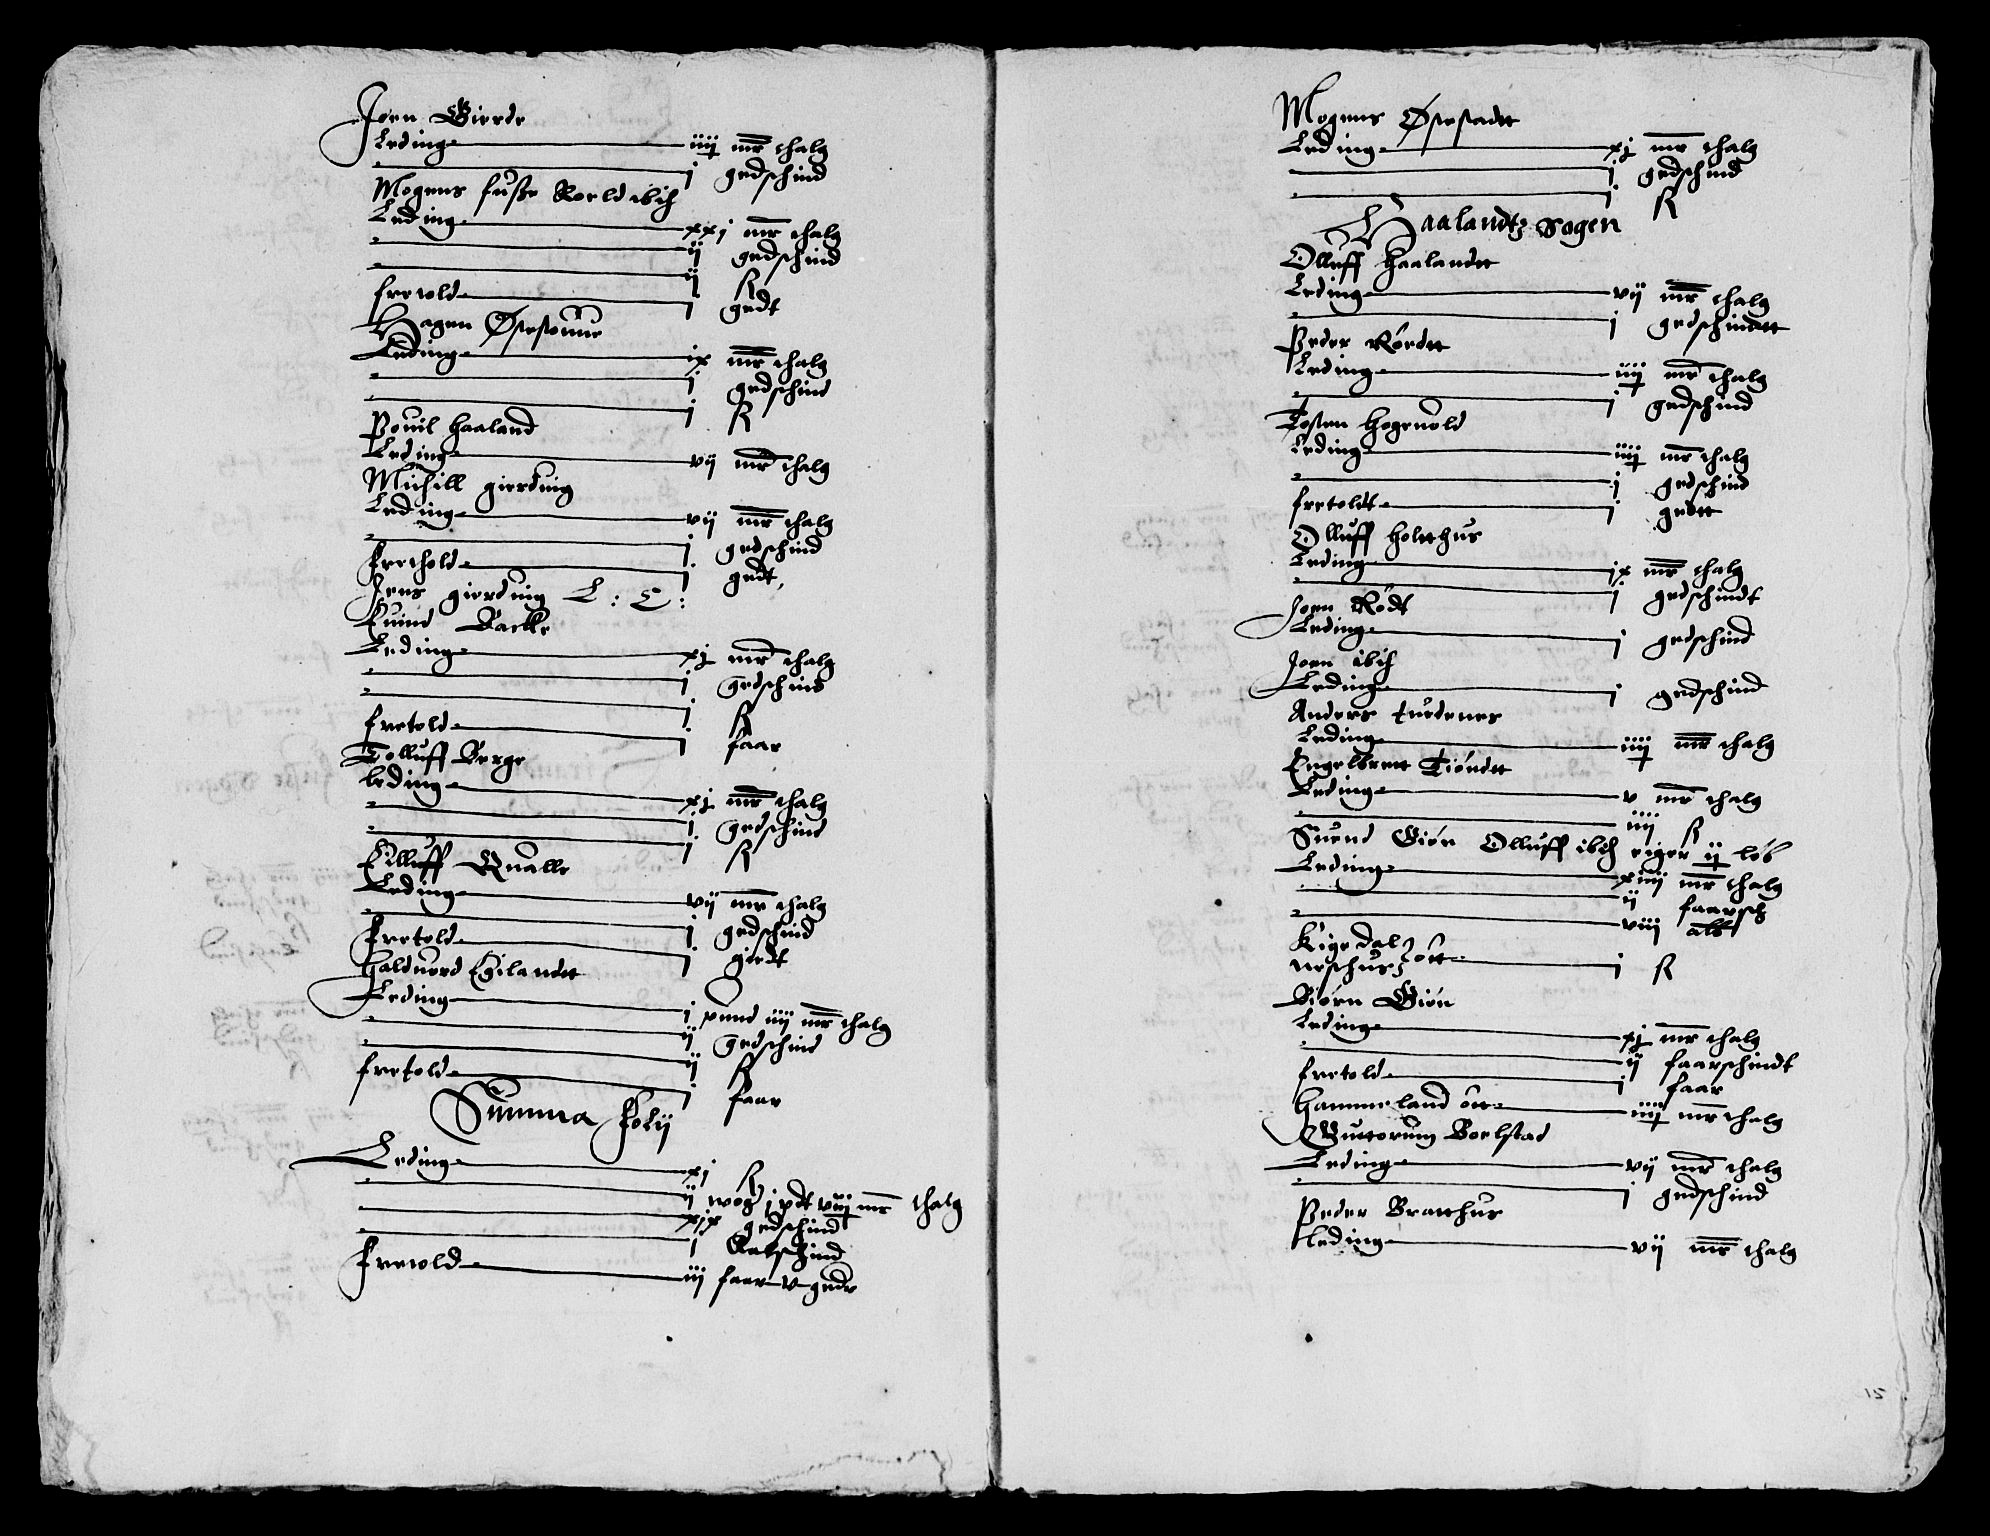 Joen Gierde
Leding iiij mr thalg
i gedschind
Mogens fusße Roeld ibiſ
Leding xxj mr thalg
ij gedschind
ij R
fretold i gedt
Hagen Øsestonne
Leding ix mr thalg
i gedschind
i R
Povil haaland
Leding vij mr thalg
Michill gierduig
Leding vij mr thalg
i gedschind
Frethold i gedt,
Jens gierduig L : E :
Euind Backe
Leding xj mr thalg
i gedschind
i R
fretold i faar
Tolluff Berge
leding xj mr thalg
i gedschind
i R
Elluff Qualle
Leding vij mr thalg
i gedschind
Fretold i giedt
Halduord Egilandtt
Leding i pund iiij mr thalg
ij gedschind
ij R
fretold i faar
Summa Folij
Leding xj R
ij wog j pdt viij mr thalg
xix gedschind
i Kalfschind
Fretold iij faar v geder
Mogens Øsestadtt
Leding xj mr thalg
i gedschind
i R
Haalandtz Sogen
Olluff Haalandtt
Leding vij mr thalg
i gedschindtt
Peder Rördtt
Leding iiij mr thalg
i gedschind
Tosten Hogeuold
Leding iiij mr thalg
i gedschind
fretoldt i gedtt
Olluff Holtthus
Leding ix mr thalg
i gedschindt
Joen Rödt
Leding i gedschind
Joen ibiſ
Leding i gedschind
Anders tuedenes
Leding iiij mr thalg
Engelbrett Tiöndtt
Leding v mr thalg
iiij R
Suend Giön Olluff ibiſ eiger ij löb
Leding xiiij mr thalg
ij faarsch
viij alb
Kigedal
neschus ött i R
Biörn Giön
Leding xj mr thalg
ij faarschindt
fretold i faar
Hammeland ött iiij mr thalg
Guttorum Boelstad
Leding vij mr thalg
i gedschind
Peder Bratthus
leding vij mr thalg
15